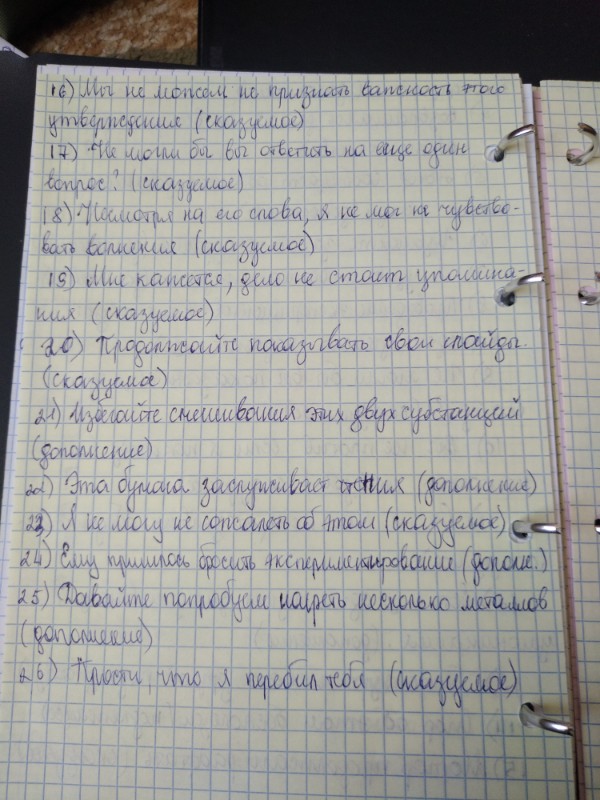 16) Мы не можем не признать важность этого
утверждение (сказуемое)
17) Не могли бы вы ответить на еще один
вопрос? (сказуемое)
18) Несмотря на его слова, я не мог не чувство-
вать волнения (сказуемое)
19) Мне кажется, дело не стоит упомина-
ния (сказуемое)
20) Продолжайте показывать свои слайды.
(сказуемое)
21) Избегайте смешивания этих двух субстанций
(дополнение)
22) Эта бумага заслуживает чтения (дополнение)
23) Я не могу не сожалеть об этом (сказуемое)
24) Ему пришлось бросить экспериментирование (дополн.)
25) Давайте попробуем нагреть несколько металлов
(дополнение)
26) Прости, что я перебил тебя (сказуемое)